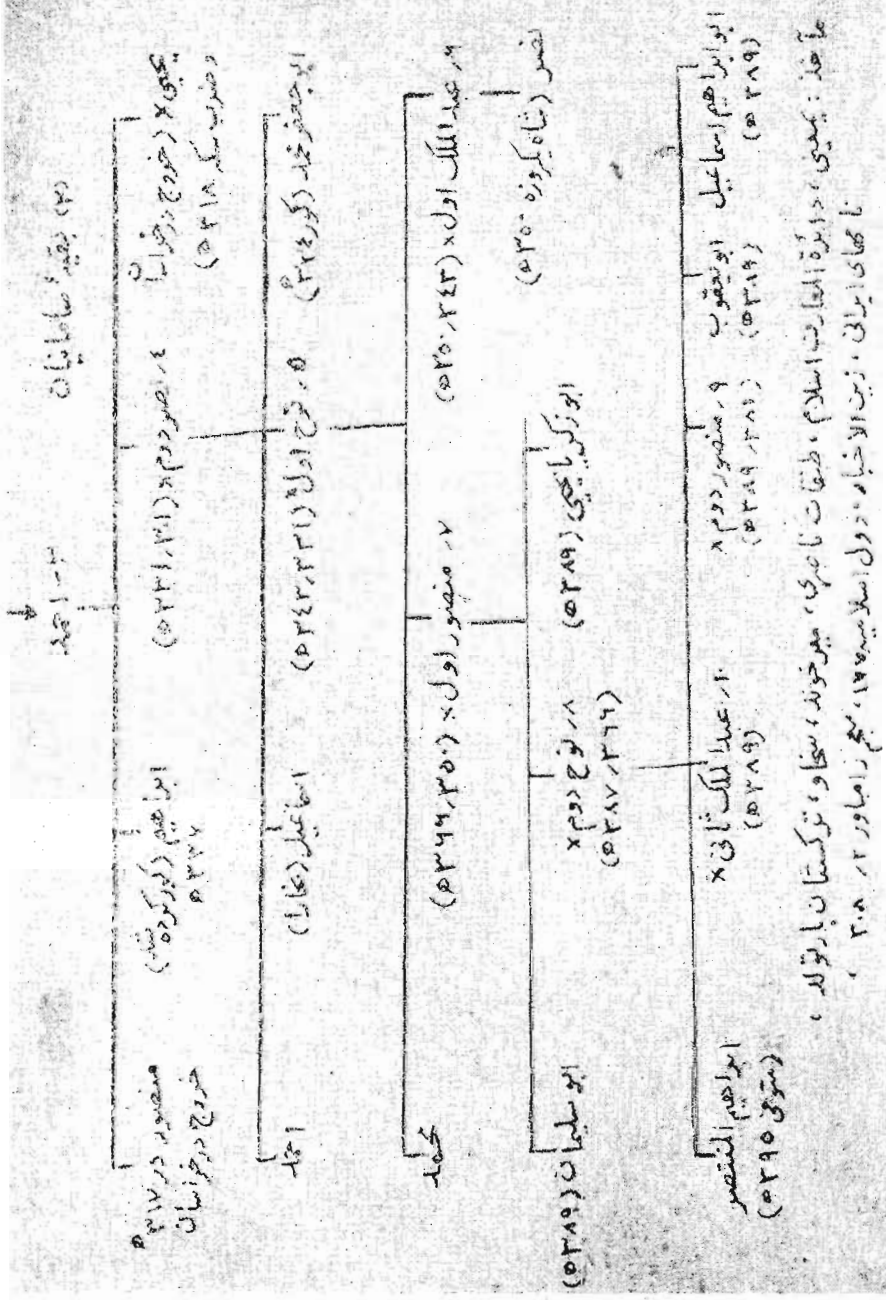 (۲) بقیهٔ سامانیان
۳- احمد
یحیی × (خروج در خراسان
و ضرب سکه ۳۱۸ ه)
۴ر نصر دوم × (۳۰۱ر۳۳۱ ه)
ابراهیم (کور کرده شد
ه)
منصور در ۳۱۷ ه
خروج در خراسان
ابو جعفر محمد (کور ۳۳۴ ه)
۵ر نوح اول × (۳۳۱ر۳۴۳ ه)
اسماعیل (بخارا)
احمد
۶ر عبدالملک اول × (۳۴۳ر۳۵۰ ه)
۷ر منصور اول × (۳۵۰ر۳۶۶ ه)
محمد
نصر (شاه یکروزه ۳۵۰ ه)
ابو زکریا یحیی (۳۸۹ ه)
۸ر نوح دوم ×
(۳۶۶ر۳۸۷ ه)
ابو سلیمان (۳۸۹ ه)
ابو ابراهیم اسماعیل
(۳۸۹ ه)
ابو یعقوب
(۳۸۹ ه)
۹ر منصور دوم ×
(۳۸۷ر۳۸۹ ه)
۱۰ر عبدالملک ثانی ×
(۳۸۹ ه)
ابراهیم المنتصر
(متوفی ۳۹۵ ه)
مآخذ: یمینی، دائرة المعارف اسلام، طبقات ناصری، میرخوند، سخاو، ترکستان بارتولد،
نامهای ایرانی، زین الاخبار، دول اسلامیه ۱۷۵، معجم زامباور ۲ر ۳۰۸،